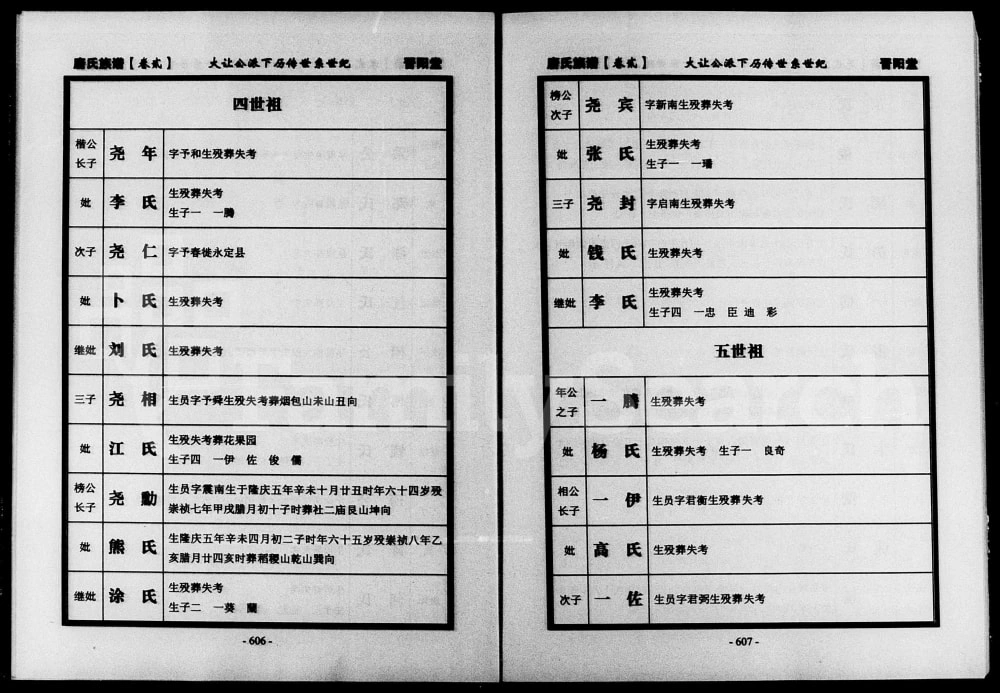 唐氏族谱【卷贰】 大让公派下历传世系世纪 晋阳堂
四世祖
楷公长子 尧年 字予和生殁葬失考
妣 李氏 生殁葬失考
生子一 一腾
次子 尧仁 字予春徙永定县
妣 卜氏 生殁葬失考
继妣 刘氏 生殁葬失考
三子 尧相 生员字予舜生殁失考葬烟包山未山丑向
妣 江氏 生殁失考葬花果园
生子四 一伊 佐 俊 儒
榜公长子 尧勳 生员字震南生于隆庆五年辛未十月廿丑时年六十四岁殁
崇祯七年甲戌腊月初十子时葬社二庙艮山坤向
妣 熊氏 生隆庆五年辛未四月初二子时年六十五岁殁崇祯八年乙
亥腊月廿四亥时葬稻稷山乾山巽向
继妣 涂氏 生殁葬失考
生子二 一葵 蘭
- 606 -
唐氏族谱【卷贰】 大让公派下历传世系世纪 晋阳堂
榜公次子 尧宾 字新南生殁葬失考
妣 张氏 生殁葬失考
生子一 一璠
三子 尧封 字启南生殁葬失考
妣 钱氏 生殁葬失考
继妣 李氏 生殁葬失考
生子四 一忠 臣 迪 彩
五世祖
年公之子 一腾 生殁葬失考
妣 杨氏 生殁葬失考 生子一 良奇
相公长子 一伊 生员字君衡生殁葬失考
妣 高氏 生殁葬失考
次子 一佐 生员字君弼生殁葬失考
- 607 -
FamilySearch